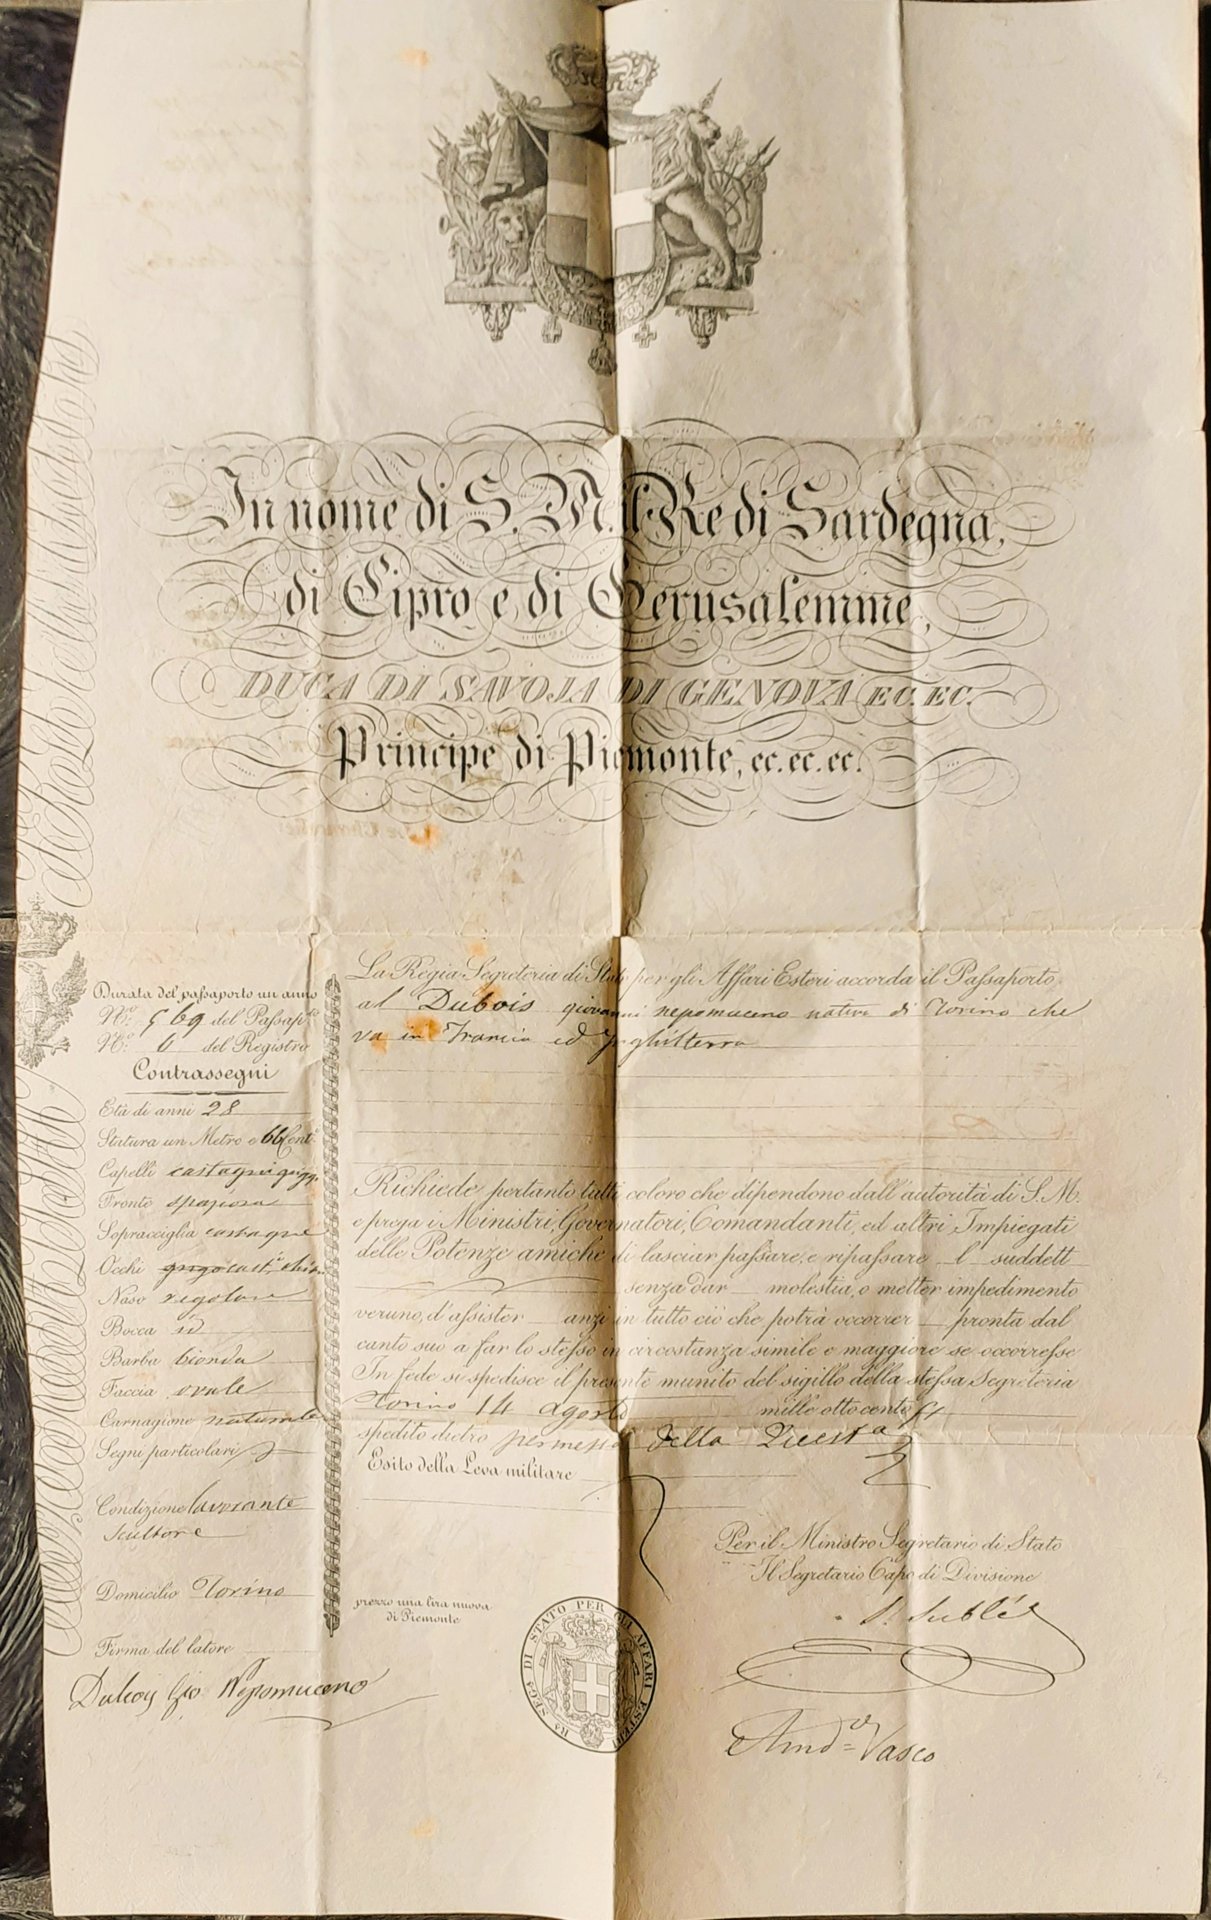 In nome di S. M. il Re di Sardegna,
di Cipro e di Gerusalemme,
DUCA DI SAVOJA DI GENOVA EC. EC.
Principe di Piemonte, ec. ec. ec.
Durata del passaporto un anno
N.º 569 del Passap.to
N.º 6 del Registro
Contrassegni
Età di anni 28
Statura un Metro e 66 Cent.
Capelli castagni
Fronte spaziosa
Sopracciglia castagne
Occhi
Naso regolare
Bocca id
Barba bionda
Faccia ovale
Carnagione naturale
Segni particolari
Condizione lavorante
scultore
Domicilio Torino
Firma del latore
Dubois Gio Nepomuceno
La Regia Segreteria di Stato per gli Affari Esteri accorda il Passaporto
al Dubois giovanni nepomuceno nativo di Torino che
va in Francia ed Inghilterra
Richiede pertanto tutti coloro che dipendono dall'autorità di S. M.
e prega i Ministri, Governatori, Comandanti, ed altri Impiegati
delle Potenze amiche di lasciar passare, e ripassare l suddett
senza dar molestia, o metter impedimento
veruno, d'assister anzi in tutto ciò che potrà occorrer pronta dal
canto suo a far lo stesso in circostanza simile e maggiore se occorresse
In fede si spedisce il presente munito del sigillo della stessa Segreteria
Torino 14 agosto mille ottocento 51
spedito dietro permesso della
Esito della Leva militare
Per il Ministro Segretario di Stato
Il Segretario Capo di Divisione
prezzo una lira nuova
di Piemonte
Ra SEGA DI STATO PER GLI AFFARI ESTERI
Vasco